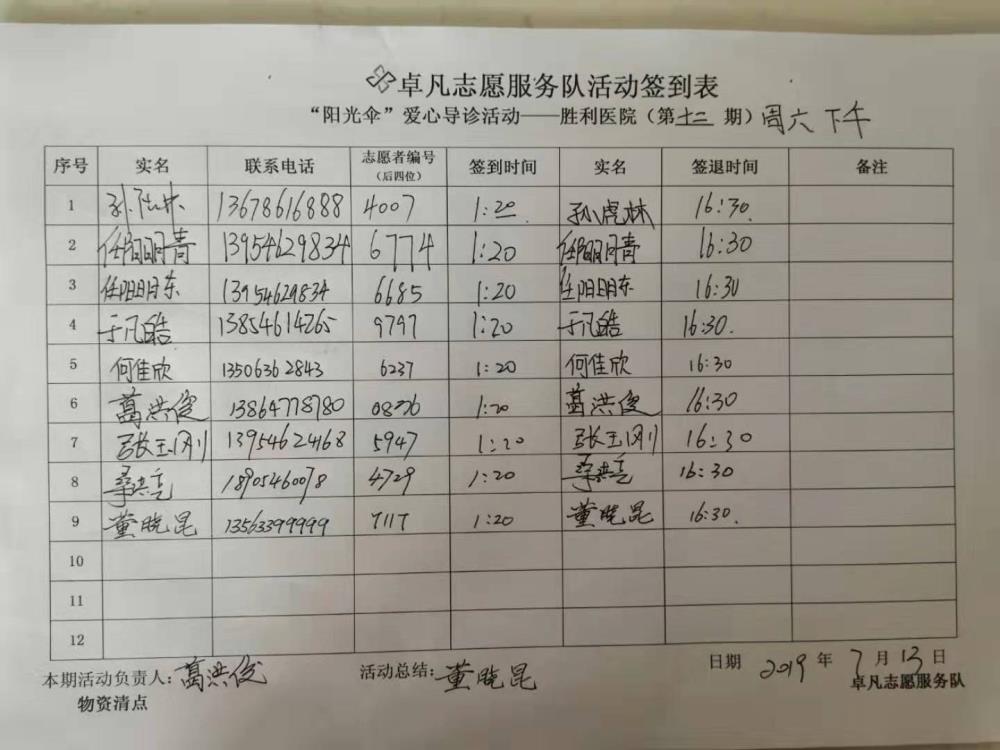 卓凡志愿服务队活动签到表
“阳光伞”爱心导诊活动——胜利医院（第十二期）周六下午
序号 实名 联系电话 志愿者编号（后四位） 签到时间 实名 签退时间 备注
1 孙虎林 13678616888 4007 1:20 孙虎林 16:30
2 任阳明青 13954629834 6774 1:20 任阳明青 16:30
3 任阳明东 13954629834 6685 1:20 任阳明东 16:30
4 于凡皓 13854614265 9797 1:20 于凡皓 16:30.
5 何佳欣 13506362843 6237 1:20 何佳欣 16:30
6 葛洪俊 13864778780 1:20 葛洪俊 16:30
7 张玉刚 13954624168 5947 1:20 张玉刚 16:30
8 桑洪亮 18905460078 4729 1:20 桑洪亮 16:30
9 董晓昆 13563399999 7117 1:20 董晓昆 16:30.
10
11
12
本期活动负责人：葛洪俊 活动总结：董晓昆 日期 2019 年 7 月 13 日
物资清点 卓凡志愿服务队